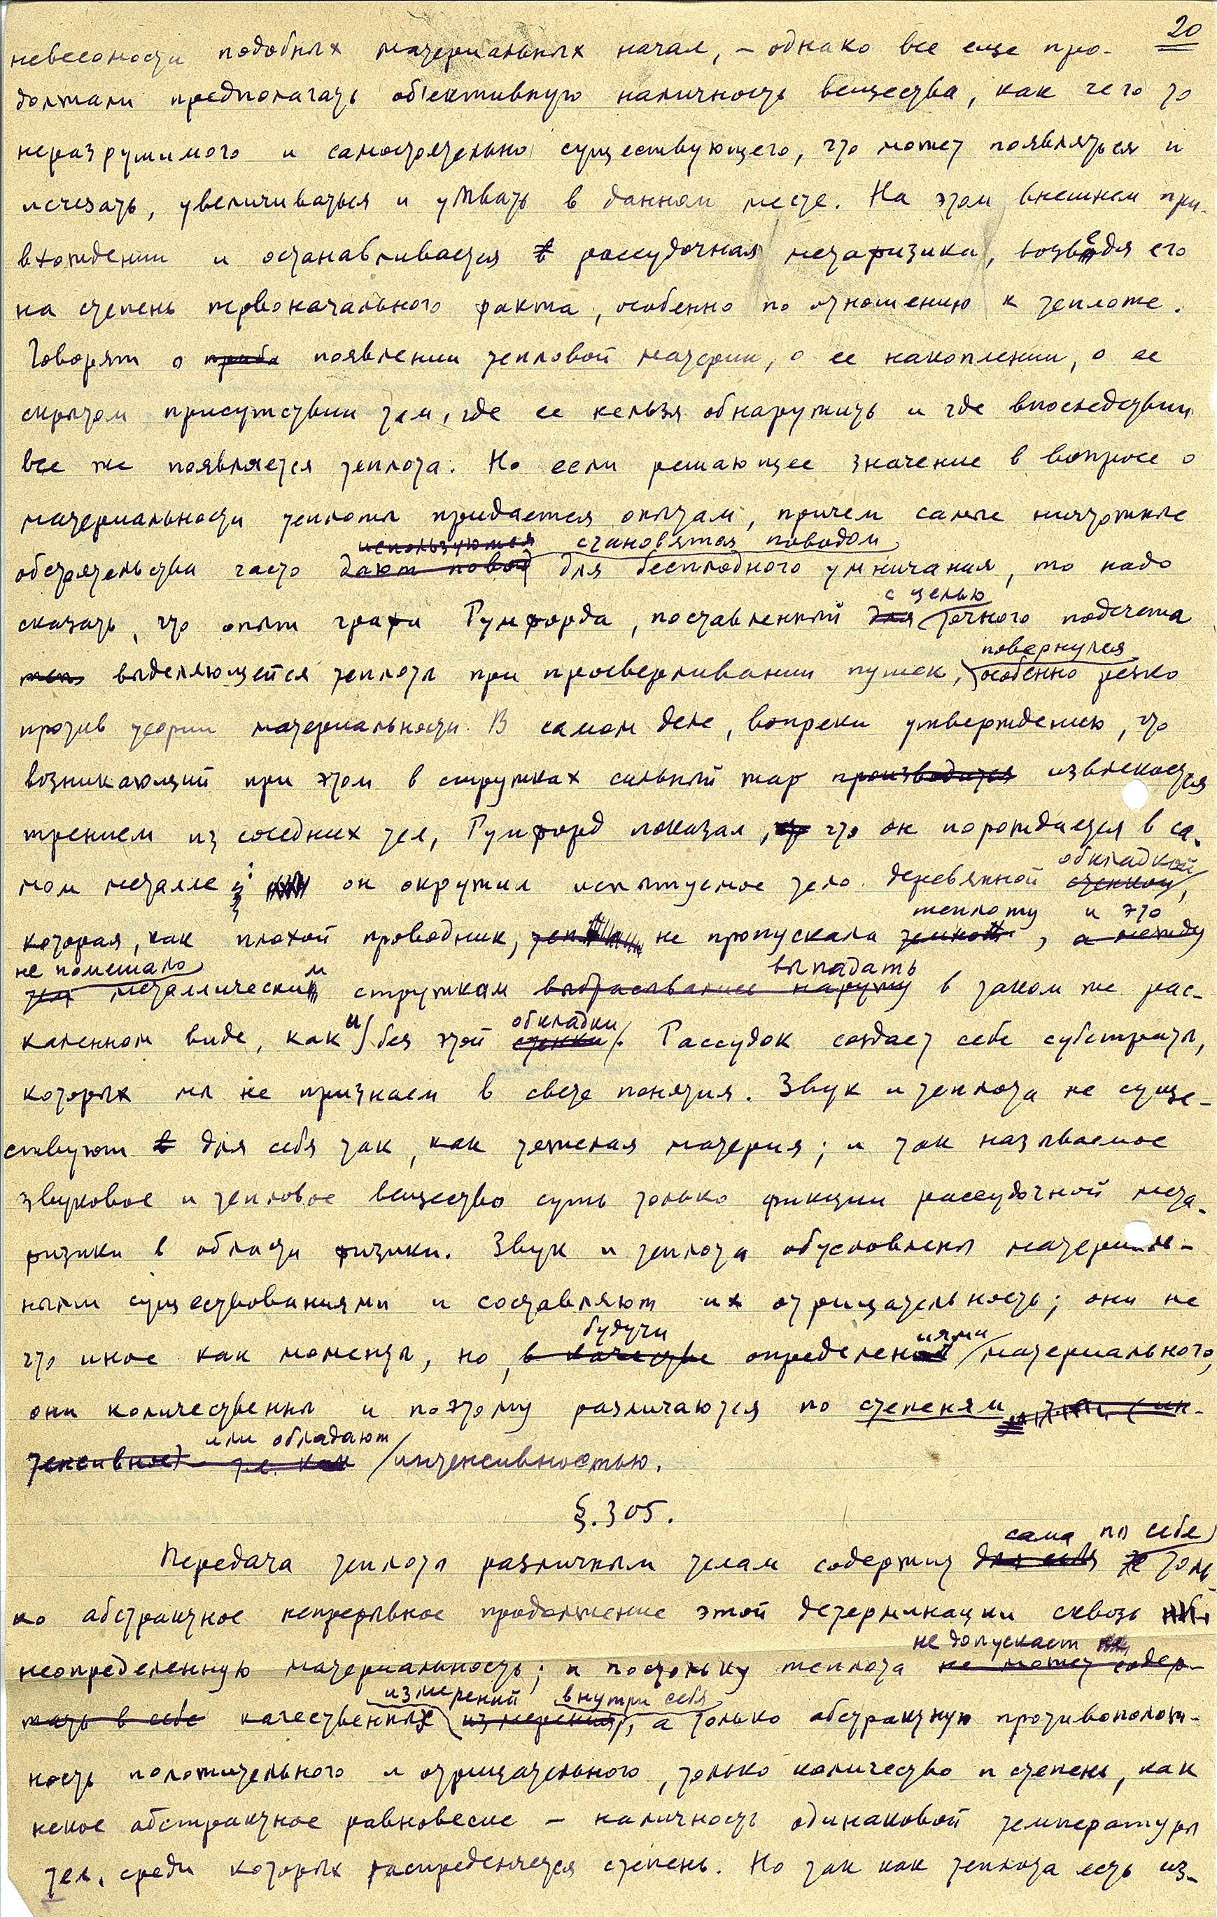 20
невесомости подобных материальных начал, – однако все еще про-
должали предполагать объективную наличность вещества, как чего то
неразрушимого и самостоятельно существующего, что может появляться и
исчезать, увеличиваться и убывать в данном месте. На этом внешнем при-
вхождении и останавливается рассудочная метафизика, возведя его
на степень первоначального факта, особенно по отношению к теплоте.
Говорят о появлении тепловой материи, о ее накоплении, о ее
скрытом присутствии там, где ее нельзя обнаружить и где впоследствии
все же появляется теплота. Но если решающее значение в вопросе о
материальности теплоты придается опытам, причем самые ничтожные
используются становятся поводом
обстоятельства часто дают повод для бесплодного умничания, то надо
с целью
сказать, что опыт графа Румфорда, поставленный для точного подсчета
повернулся
выделяющейся теплоты при просверливании пушек, особенно резко
против теории материальности. В самом деле, вопреки утверждению, что
возникающий при этом в стружках сильный жар производится извлекается
трением из соседних тел, Румфорд показал, что он порождается в са-
обкладкой
мом металле; он окружил испытуемое тело деревянной стенкой,
теплоту и это
которая, как плохой проводник, не пропускала , а между
не помешало выпадать
металлическим стружкам выбрасывание наружу в таком же рас-
обкладки
каленном виде, как и без этой стенки. Рассудок создает себе субстраты,
которых мы не признаем в свете понятия. Звук и теплота не суще-
ствуют для себя так, как тяжелая материя; и так называемое
звуковое и тепловое вещество суть только фикции рассудочной мета-
физики в области физики. Звук и теплота обусловлены материаль-
ными существованиями и составляют их отрицательность; они не
будучи иями
что иное как моменты, но, в качестве определен материального,
они количественны и поэтому различаются по степеням (ин-
или обладают
тенсивное) т.е. как интенсивностью.
§. 305.
сама по себе
Передача теплоты различным телам содержит для себя толь-
ко абстрактное непрерывное продолжение этой детерминации сквозь
не допускает
неопределенную материальность; и постольку теплота не может содер-
измерений внутри себя
жать в себе качественных измерения, а только абстрактную противополож-
ность положительного и отрицательного, только количество и степень, как
некое абстрактное равновесие – наличность одинаковой температуры
тел, среди которых распределяется степень. Но так как теплота есть из-